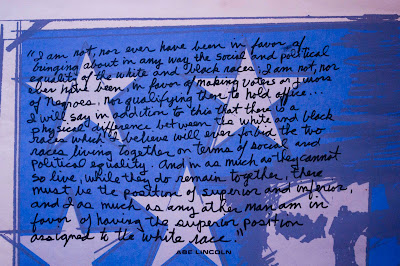 "I am not, nor ever have been in favor of
bringing about in any way the social and political
equality of the white and black races; I am not, nor
ever have been, in favor of making voters or jurors
of Negroes, nor qualifying them to hold office...
I will say in addition to this that there is a
physical difference between the white and black
races which I believe will ever forbid the two
races living together on terms of social and
political equality. And in as much as they cannot
so live, while they do remain together, there
must be the position of superior and inferior,
and I as much as any other man am in
favor of having the superior position
assigned to the white race."
ABE LINCOLN